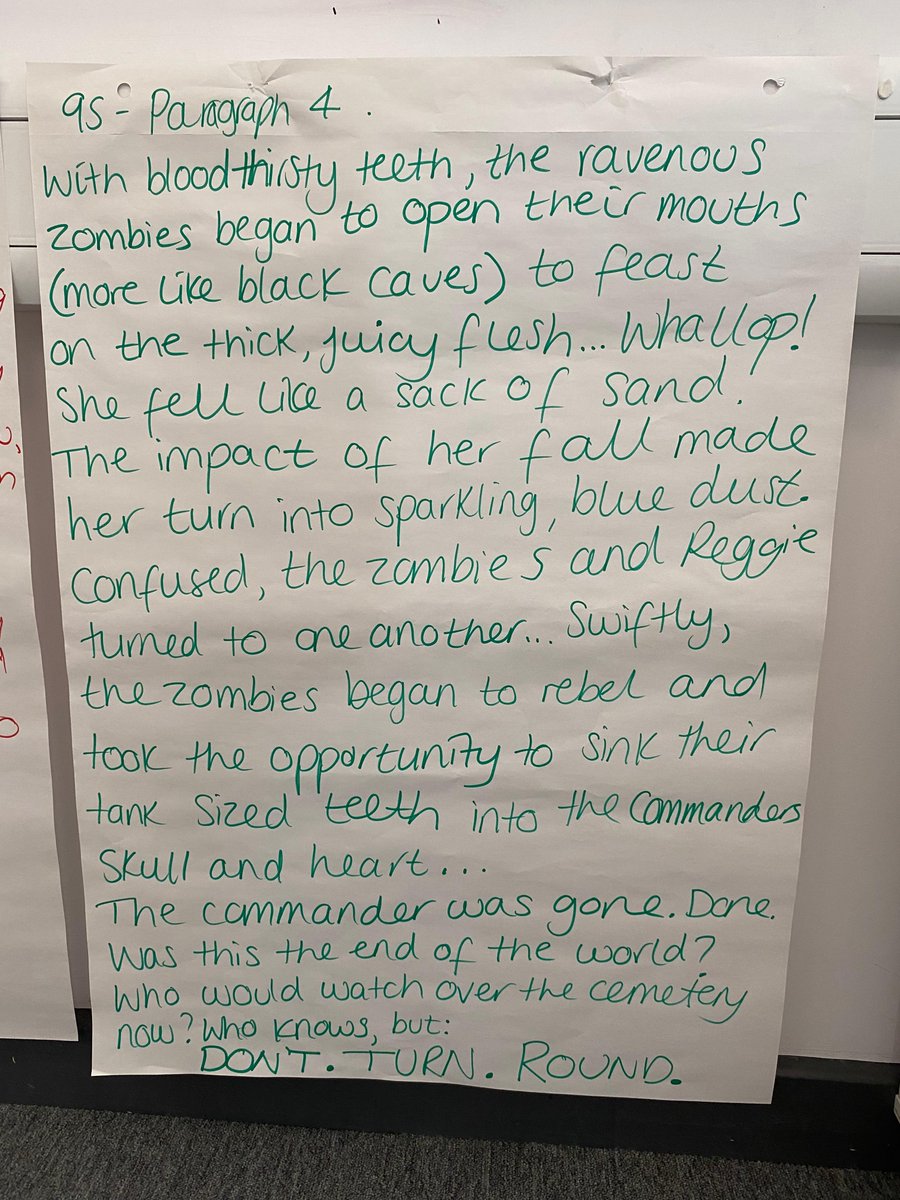 9S - Paragraph 4.
With bloodthirsty teeth, the ravenous
zombies began to open their mouths
(more like black caves) to feast
on the thick, juicy flesh... Whallop!
She fell like a sack of sand.
The impact of her fall made
her turn into sparkling, blue dust.
Confused, the zombies and Reggie
turned to one another... Swiftly,
the zombies began to rebel and
took the opportunity to sink their
tank sized teeth into the Commanders
skull and heart...
The commander was gone. Done.
Was this the end of the world?
Who would watch over the cemetery
now? Who knows, but:
DON'T. TURN. ROUND.